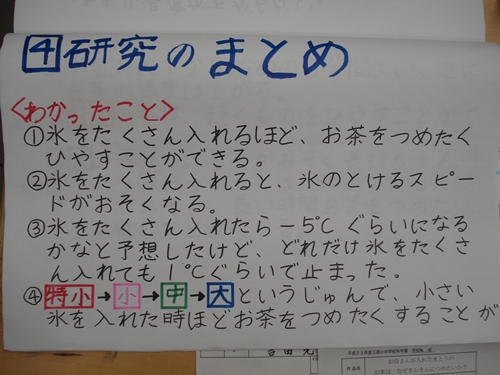 4 研究のまとめ
<わかったこと>
①氷をたくさん入れるほど、お茶をつめたく
ひやすことができる。
②氷をたくさん入れると、氷のとけるスピー
ドがおそくなる。
③氷をたくさん入れたら-5℃ぐらいになる
かなと予想したけど、どれだけ氷をたくさ
ん入れても1℃ぐらいで止まった。
④特小→小→中→大というじゅんで、小さい
氷を入れた時ほどお茶をつめたくすることが